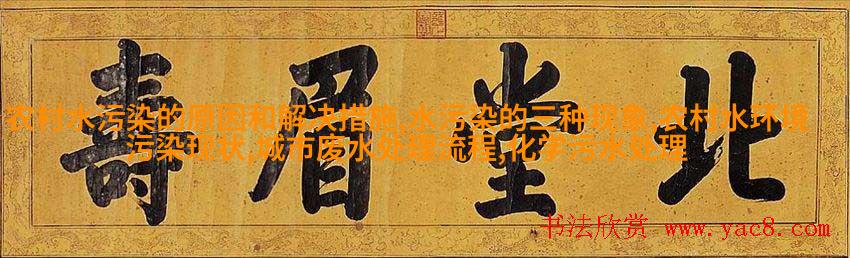 北堂眉壽
农村水污染的原因和解决措施,水污染的三种现象,农村水环境
污染现状,城市废水处理流程,化学污水处理
书法欣赏 www.yac8.com